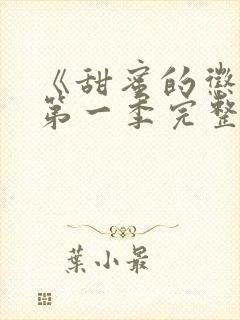 《甜蜜的懲
第一季完整
葉小最